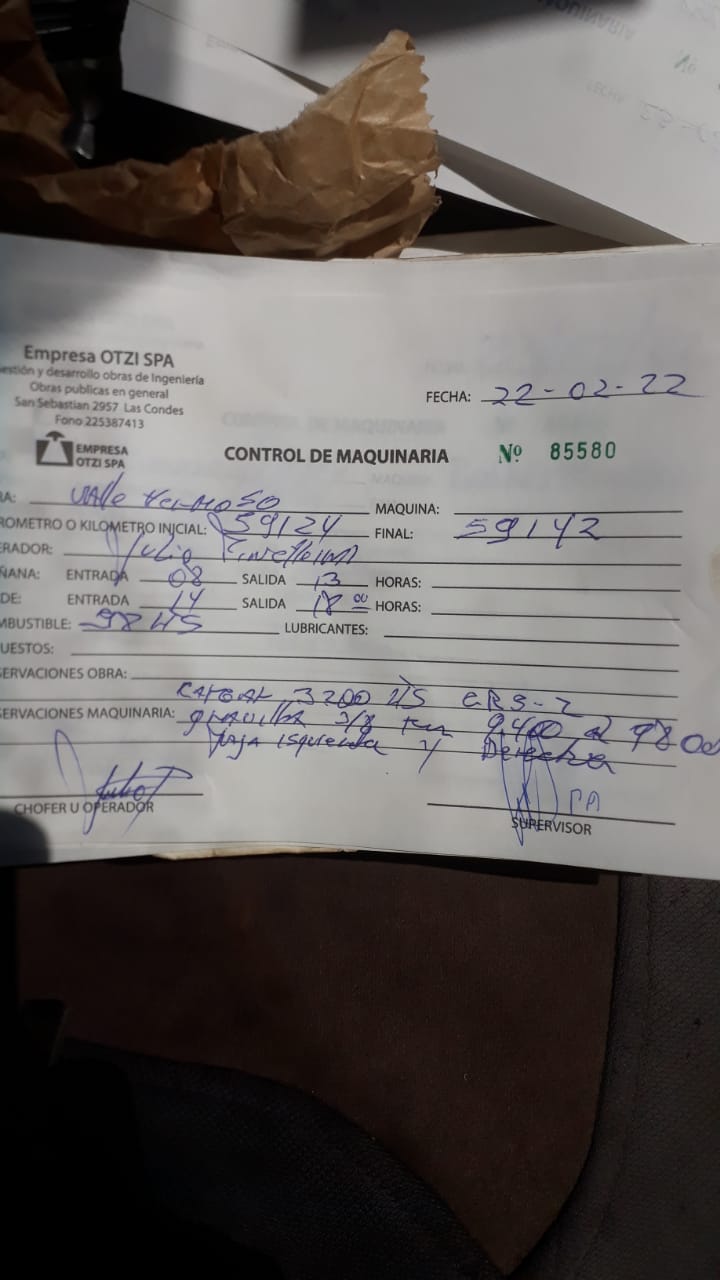 Empresa OTZI SPA
estión y desarrollo obras de Ingeniería
Obras publicas en general
San Sebastian 2957 Las Condes
Fono 225387413
EMPRESA
OTZI SPA
FECHA: 22-02-22
CONTROL DE MAQUINARIA Nº 85580
RA: Valle Hermoso MAQUINA:
ROMETRO O KILOMETRO INICIAL: 59124 FINAL: 59142
ERADOR: Julio
ÑANA: ENTRADA 08 SALIDA 13 HORAS:
DE: ENTRADA 14 SALIDA 18 00 HORAS:
MBUSTIBLE: LUBRICANTES:
UESTOS:
ERVACIONES OBRA:
3200 CRS-2
ERVACIONES MAQUINARIA: gravilla 3/8 9.400 al 9800
faja isquierda y Derecha
CHOFER U OPERADOR
PA
SUPERVISOR
MAQUINARIA
Nº
FECHA